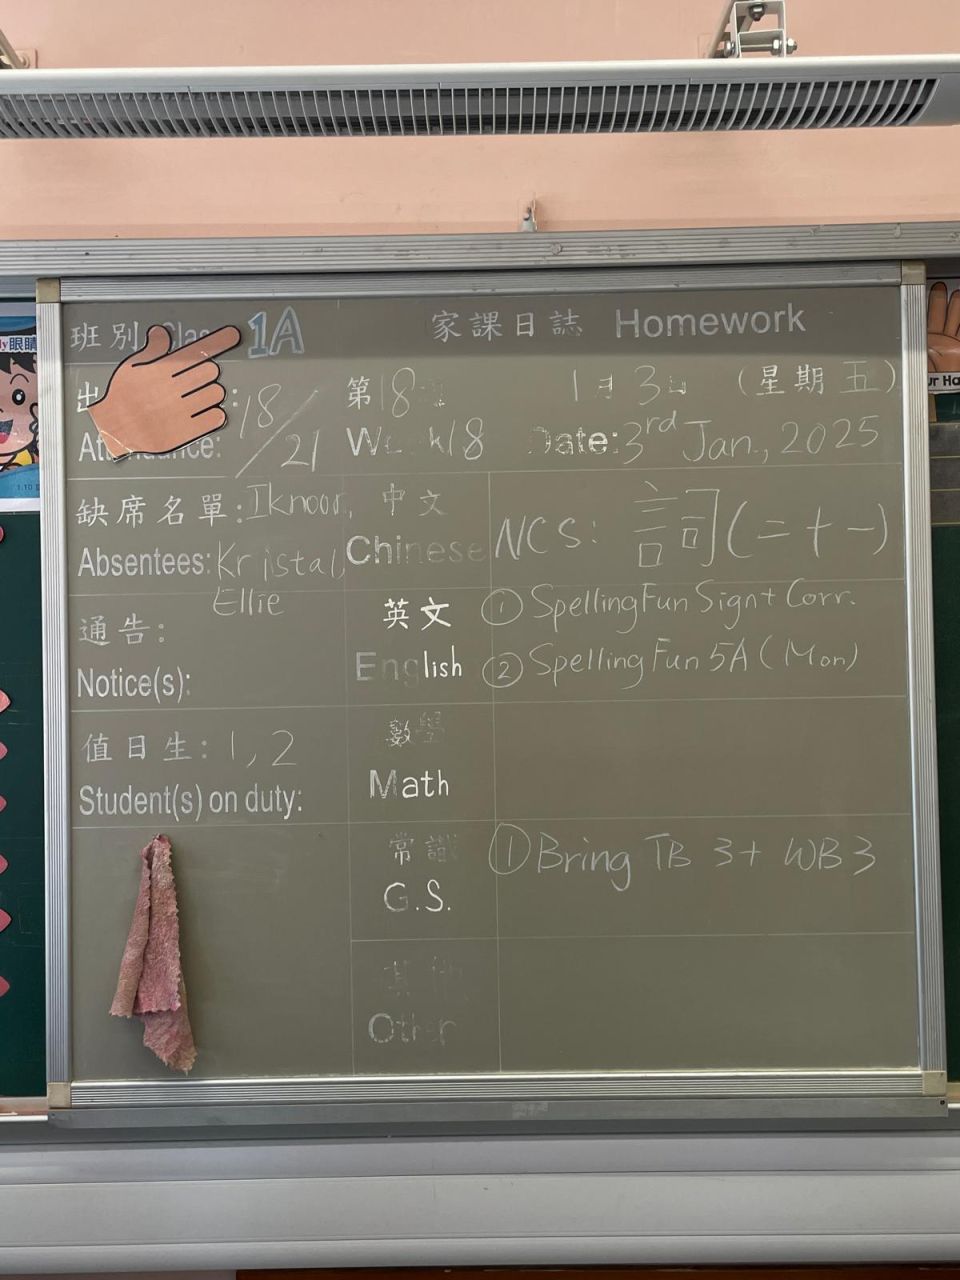 班別 Clas 1A
家課日誌 Homework
出 : 18/21
Attendance:
第18
Week 18
1月3日 (星期五)
Date: 3rd Jan., 2025
缺席名單: Iknoor,
Absentees: Kristal,
Ellie
中文
Chinese
NCS: 詞(二十一)
通告:
Notice(s):
英文
English
① Spelling Fun Sign + Corr.
② Spelling Fun 5A (Mon)
值日生: 1, 2
Student(s) on duty:
數學
Math
常識
G.S.
① Bring TB 3 + WB 3
其他
Other
眼睛
ur Ha